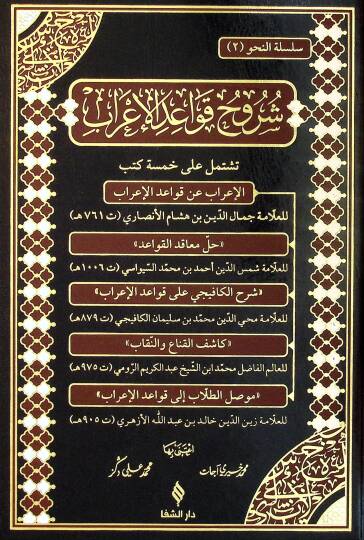 سلسلة النحو (٢)
شُرُوحُ قَوَاعِدِ الإِعْرَابِ
تشتمل على خمسة كتب
الإعراب عن قواعد الإعراب
للعلّامة جمال الدّين بن هشام الأنصاري (ت ٧٦١هـ)
«حلّ معاقد القواعد»
للعلّامة شمس الدّين أحمد بن محمّد السّيواسي (ت ١٠٠٦هـ)
«شرح الكافيجي على قواعد الإعراب»
للعلّامة محي الدّين محمّد بن سليمان الكافيجي (ت ٨٧٩هـ)
«كاشف القناع والنّقاب»
للعالم الفاضل محمّد ابن الشّيخ عبد الكريم الرّومي (ت ٩٧٥هـ)
«موصل الطلّاب إلى قواعد الإعراب»
للعلّامة زين الدّين خالد بن عبد اللّه الأزهري (ت ٩٠٥هـ)
اعتنى بها
محمد خيري آجات محمد علي دكز
دار الشفا